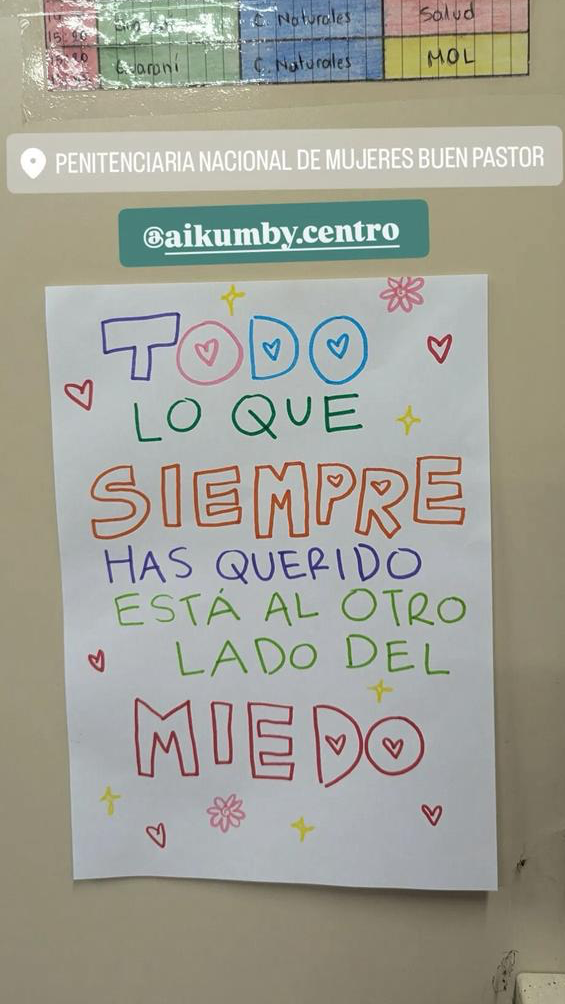 C. Naturales Salud
15:20 Guaraní C. Naturales MOL
PENITENCIARIA NACIONAL DE MUJERES BUEN PASTOR
@aikumby.centro
TODO
LO QUE
SIEMPRE
HAS QUERIDO
ESTÁ AL OTRO
LADO DEL
MIEDO